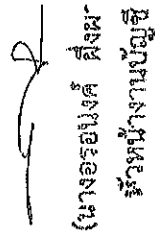 (นางอรอนงค์ ผึ่งผา
หัวหน้างานบัญชี